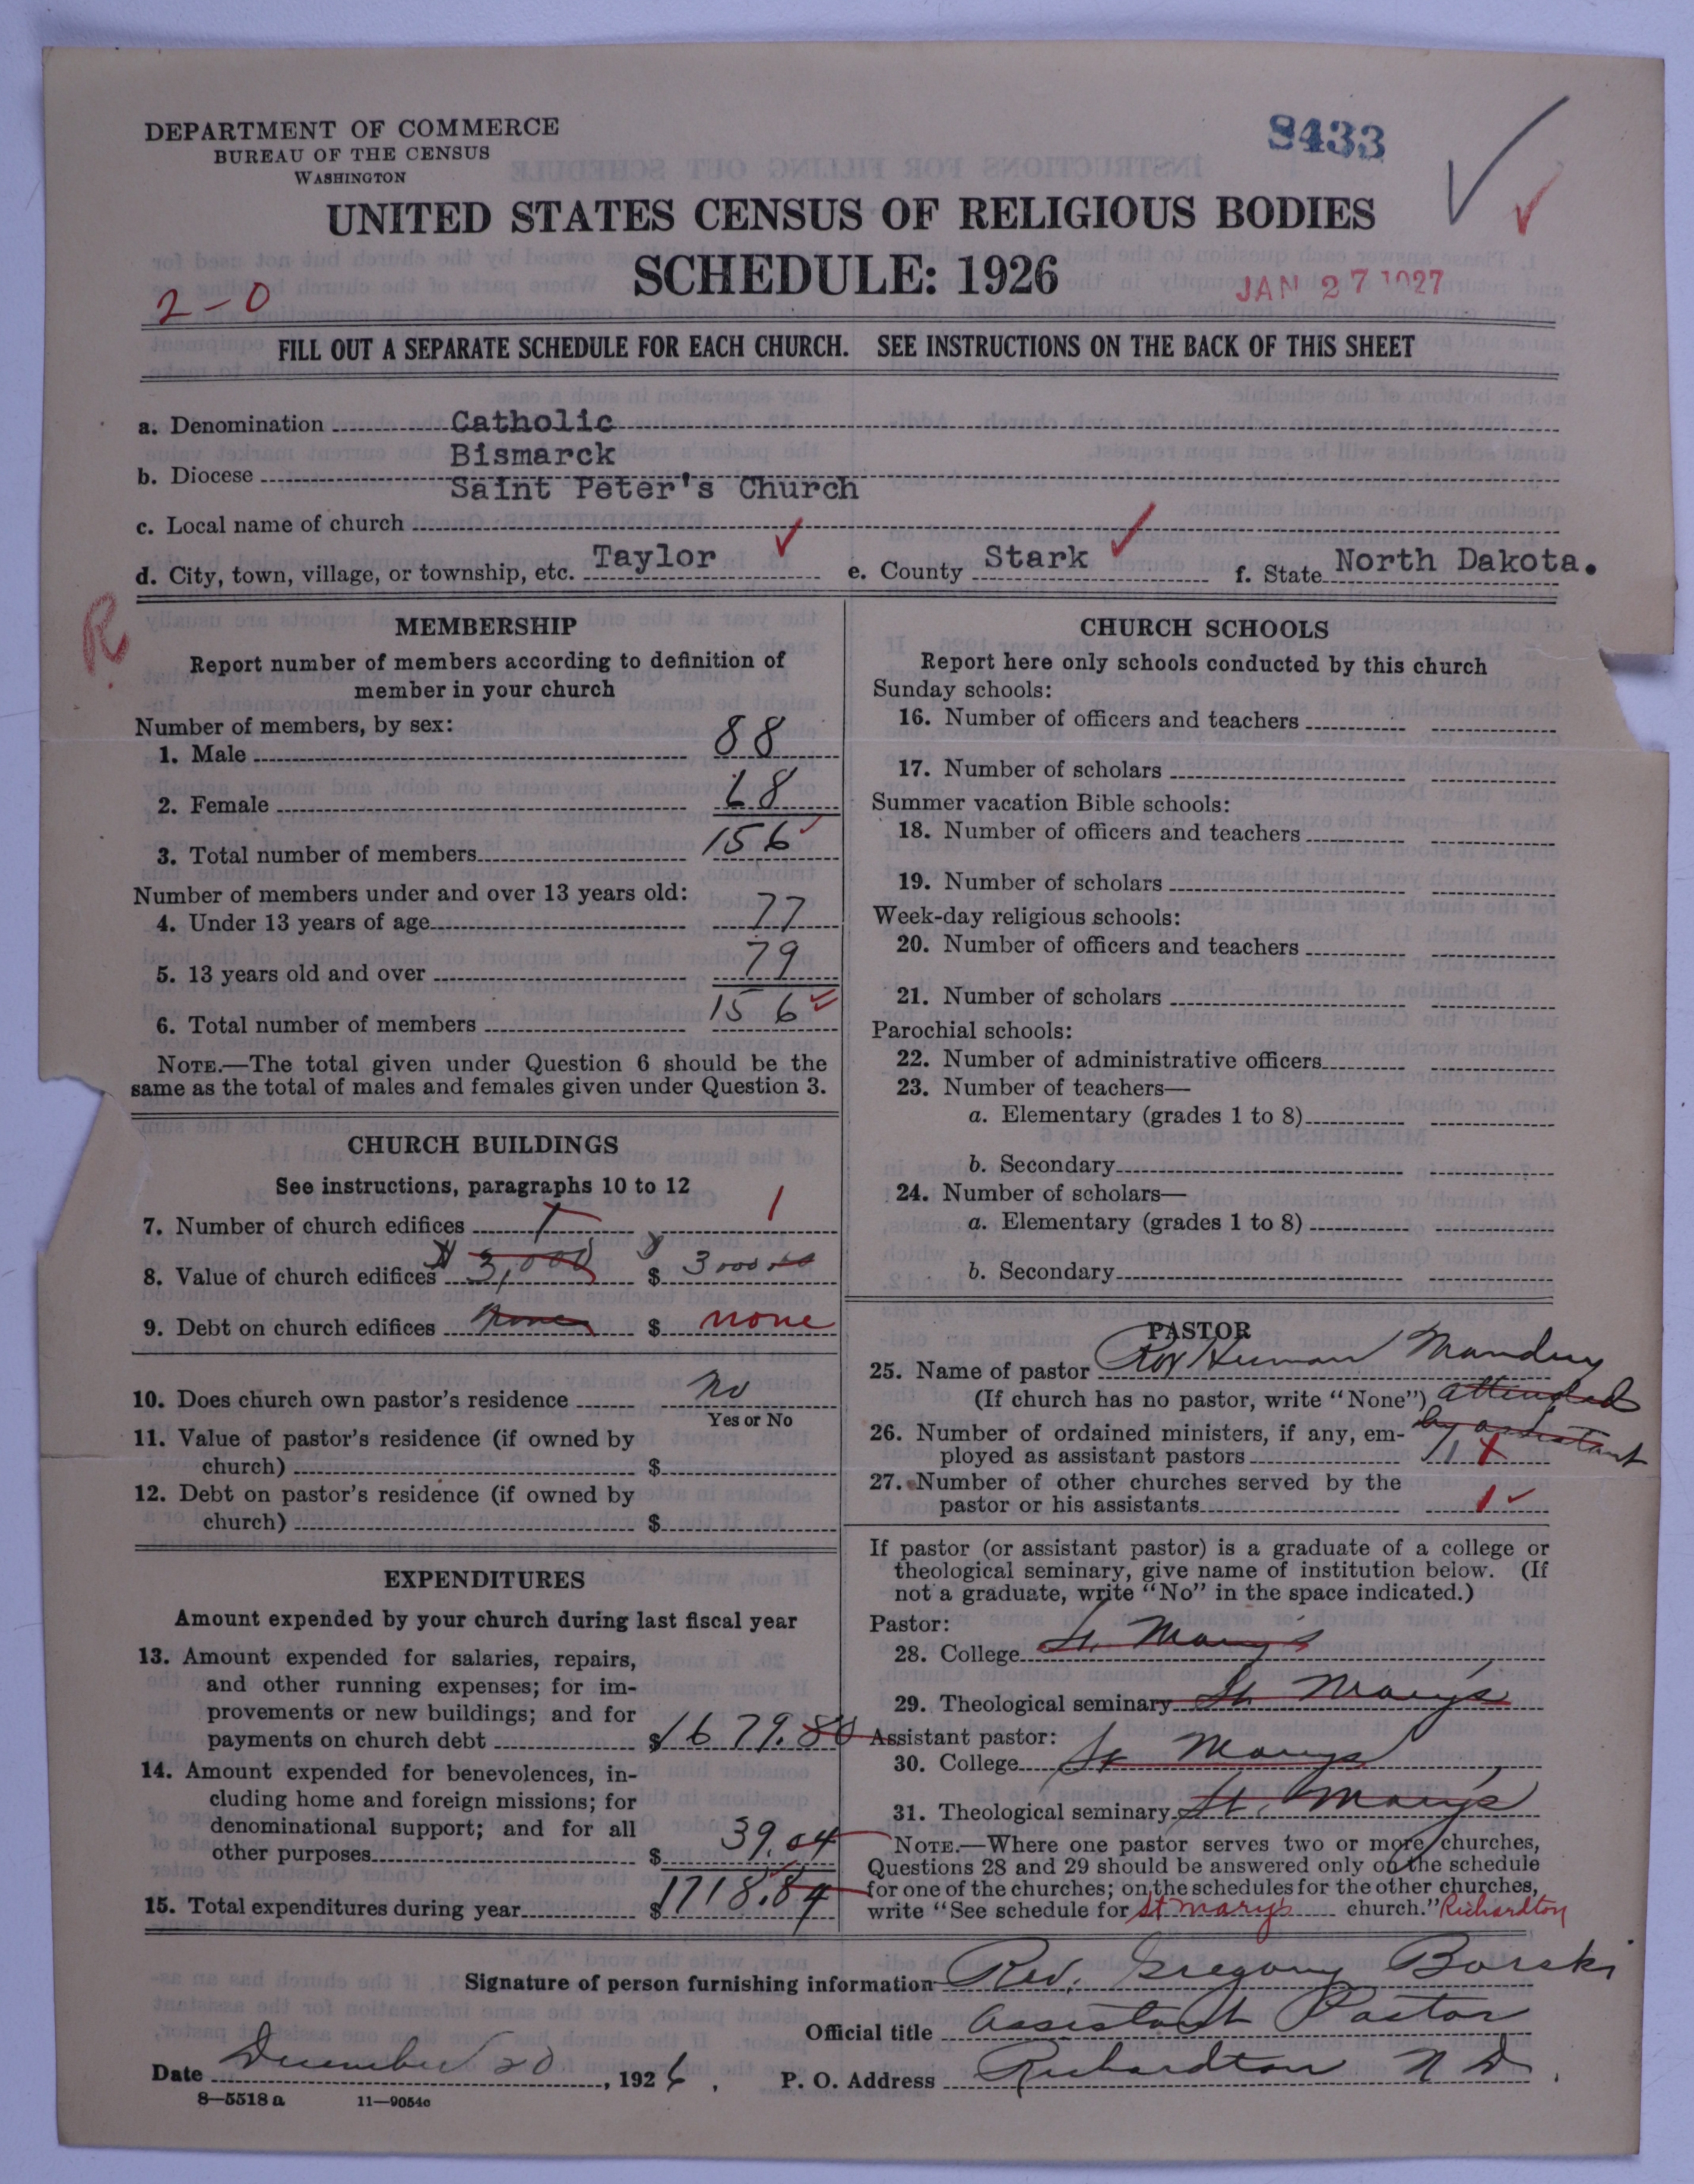 DEPARTMENT OF COMMERCE
BUREAU OF THE CENSUS
WASHINGTON
8433
UNITED STATES CENSUS OF RELIGIOUS BODIES
SCHEDULE: 1926
2-0
JAN 27 1927
FILL OUT A SEPARATE SCHEDULE FOR EACH CHURCH. SEE INSTRUCTIONS ON THE BACK OF THIS SHEET
a. Denomination Catholic
b. Diocese Bismarck
Saint Peter's Church
c. Local name of church
d. City, town, village, or township, etc. Taylor e. County Stark f. State North Dakota.
R
MEMBERSHIP
Report number of members according to definition of
member in your church
Number of members, by sex:
1. Male 88
2. Female 68
3. Total number of members 156
Number of members under and over 13 years old:
4. Under 13 years of age 77
5. 13 years old and over 79
6. Total number of members 156
NOTE.—The total given under Question 6 should be the
same as the total of males and females given under Question 3.
CHURCH BUILDINGS
See instructions, paragraphs 10 to 12
7. Number of church edifices 1 1
8. Value of church edifices $ 3,000 $ 3000.00
9. Debt on church edifices None $ none
10. Does church own pastor's residence No
Yes or No
11. Value of pastor's residence (if owned by
church) $
12. Debt on pastor's residence (if owned by
church) $
EXPENDITURES
Amount expended by your church during last fiscal year
13. Amount expended for salaries, repairs,
and other running expenses; for im-
provements or new buildings; and for
payments on church debt $1679.80
14. Amount expended for benevolences, in-
cluding home and foreign missions; for
denominational support; and for all
other purposes $ 39.04
15. Total expenditures during year $1718.84
CHURCH SCHOOLS
Report here only schools conducted by this church
Sunday schools:
16. Number of officers and teachers
17. Number of scholars
Summer vacation Bible schools:
18. Number of officers and teachers
19. Number of scholars
Week-day religious schools:
20. Number of officers and teachers
21. Number of scholars
Parochial schools:
22. Number of administrative officers
23. Number of teachers—
a. Elementary (grades 1 to 8)
b. Secondary
24. Number of scholars—
a. Elementary (grades 1 to 8)
b. Secondary
PASTOR
25. Name of pastor Herman Mandry
(If church has no pastor, write "None") attended
by assistant
26. Number of ordained ministers, if any, em-
ployed as assistant pastors 1
27. Number of other churches served by the
pastor or his assistants 1
If pastor (or assistant pastor) is a graduate of a college or
theological seminary, give name of institution below. (If
not a graduate, write "No" in the space indicated.)
Pastor:
28. College St. Mary's
29. Theological seminary St. Mary's
Assistant pastor:
30. College St Marys
31. Theological seminary St. Mary's
NOTE.—Where one pastor serves two or more churches,
Questions 28 and 29 should be answered only on the schedule
for one of the churches; on the schedules for the other churches,
write "See schedule for St Marys church." Richardton
Signature of person furnishing information Rev. Gregory Borski
Official title Assistant Pastor
Date December 20, 1926. P. O. Address Richardton N D.
8—5518 a 11—9054c